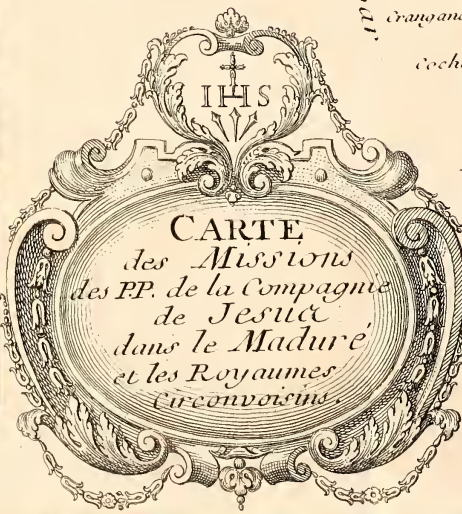 Crangan
Coch
IHS
CARTE
des Missions
des P.P. de la Compagnie
de Jesus
dans le Maduré
et les Royaumes
Circonvoisins.